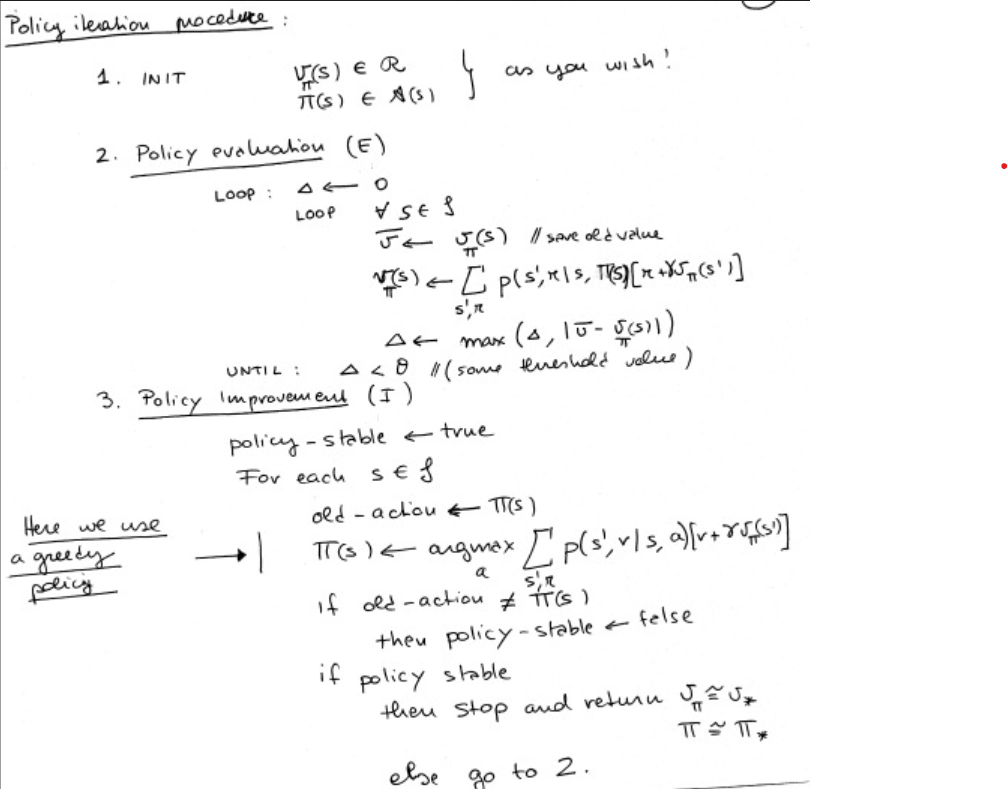 Policy iteration procedure :
1. INIT v_π(s) ∈ ℝ } as you wish!
π(s) ∈ A(s)
2. Policy evaluation (E)
LOOP : Δ ← 0
LOOP ∀ s ∈ S
v̄ ← v_π(s) // save old value
v_π(s) ← ∑_{s',r} p(s',r|s, π(s))[r + γv_π(s')]
Δ ← max (Δ, |v̄ - v_π(s)|)
UNTIL : Δ < θ // (some threshold value)
3. Policy Improvement (I)
policy-stable ← true
For each s ∈ S
old-action ← π(s)
Here we use
a greedy
policy
→ | π(s) ← argmax_a ∑_{s',r} p(s',r|s,a)[r + γv_π(s')]
if old-action ≠ π(s)
then policy-stable ← false
if policy stable
then stop and return v_π ≅ v_*
π ≅ π_*
else go to 2.